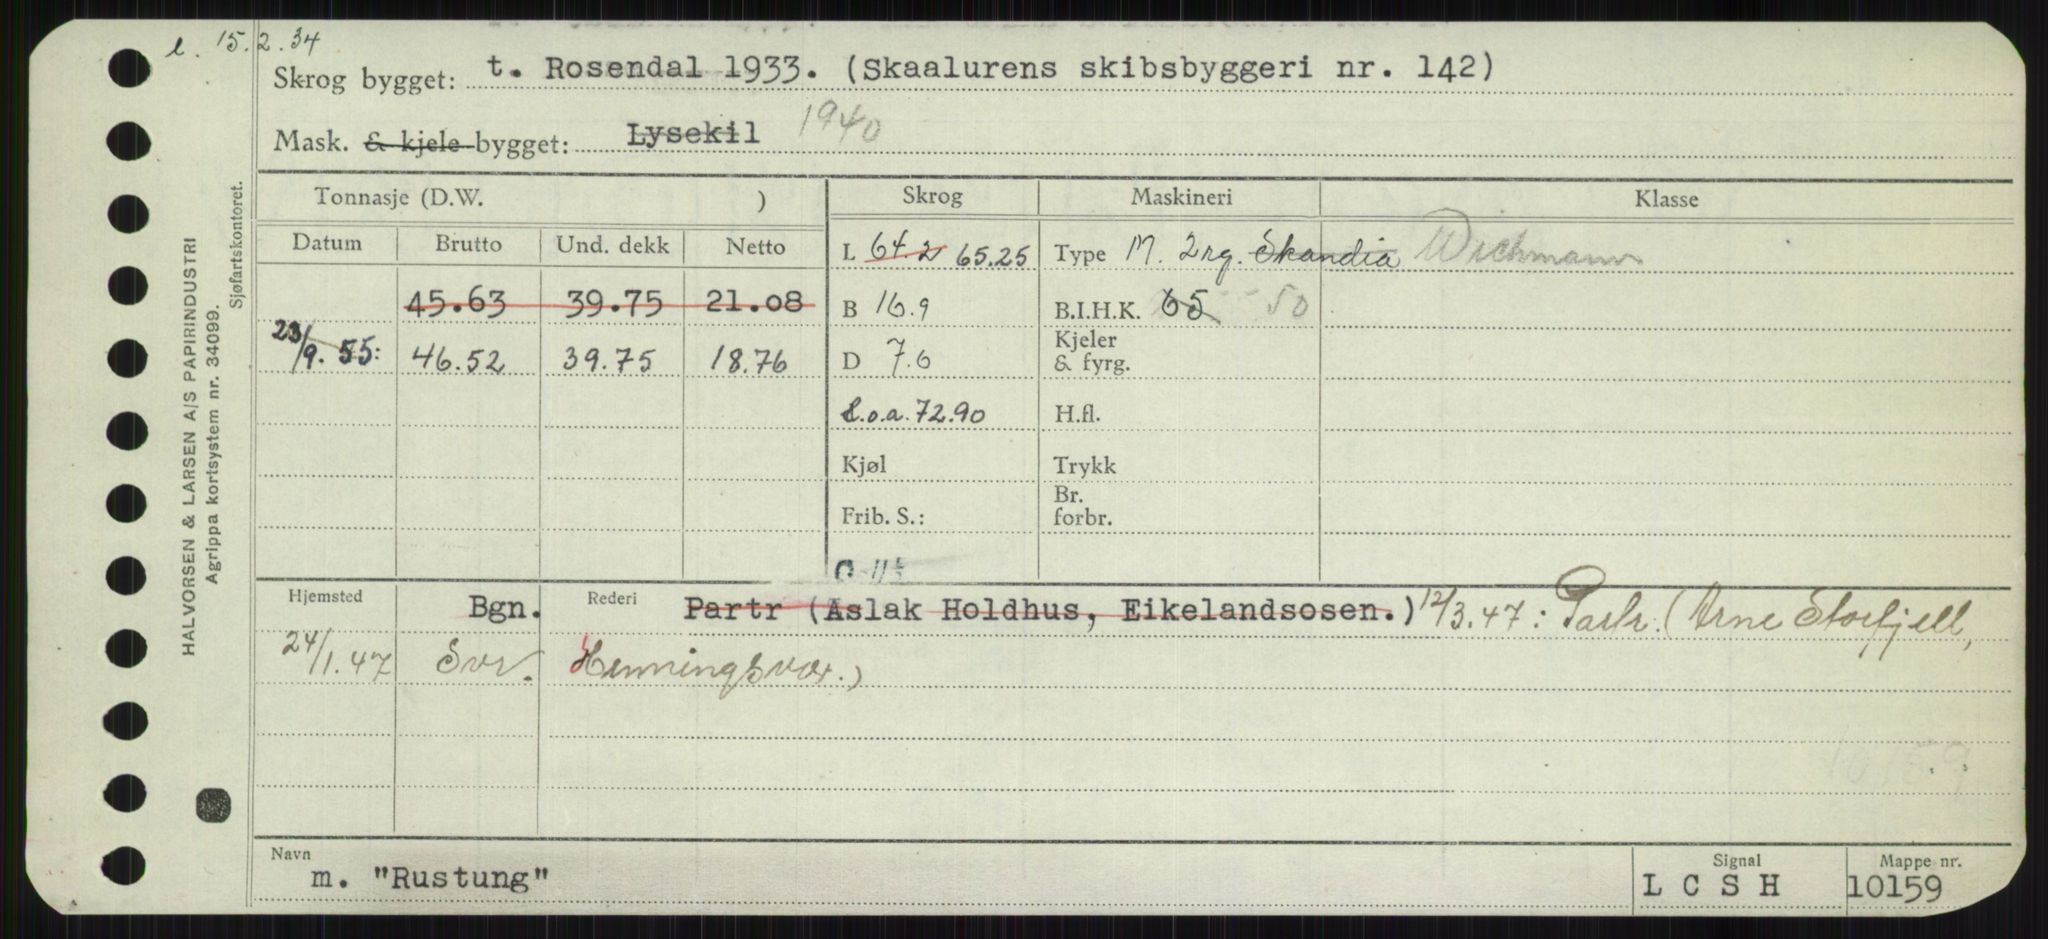 l. 15.2.34
Skrog bygget: t. Rosendal 1933. (Skaalurens skibsbyggeri nr. 142)
Mask. & kjele bygget: Lysekil 1940
Tonnasje (D.W. ) Skrog Maskineri Klasse
Datum Brutto Und. dekk Netto L 64.2 65.25 Type M. 2rg. Skandia Wichmann
45.63 39.75 21.08 B 16.9 B.I.H.K. 65 50
23/9.55: 46.52 39.75 18.76 D 7.6 Kjeler & fyrg.
L.o.a. 72.90 H.fl.
Kjøl Trykk
Frib. S.: Br. forbr.
Hjemsted Bgn. Rederi Partr (Aslak Holdhus, Eikelandsosen.) 12/3.47: Partr. (Arne Storfjell,
24/1.47 Svr. Henningsvær.)
10159
Navn Signal Mappe nr.
m. "Rustung" L C S H 10159
HALVORSEN & LARSEN A/S PAPIRINDUSTRI
Agrippa kortsystem nr. 34099.
Sjøfartskontoret.